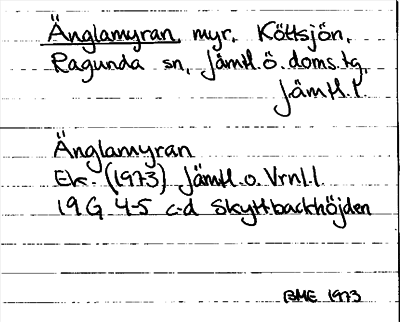 Änglamyran, myr, Köttsjön,
Ragunda sn, Jämtl.ö.doms.tg,
Jämtl.l.
Änglamyran
Ek. (1973) Jämtl.o.Vrnl.l.
19G 4-5 c-d Skyttbackhöjden
BME 1973